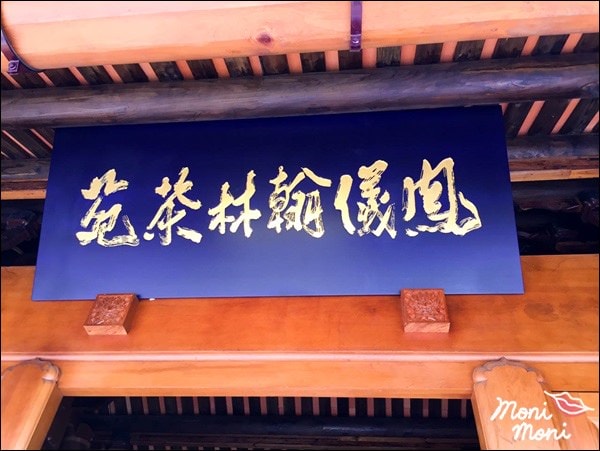 鳳儀翰林茶苑
Moni
Moni